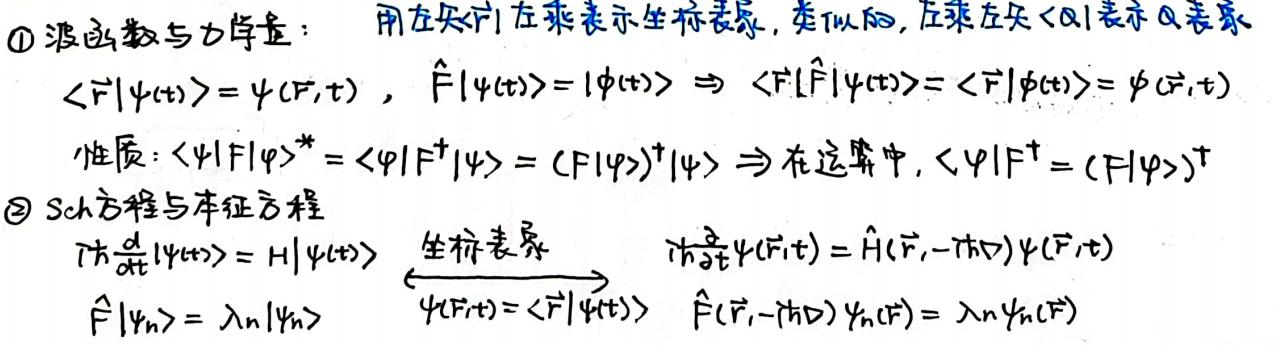 用左矢<r⃗|左乘表示坐标表象,类似的,左乘左矢<Q|表示Q表象
① 波函数与力学量:
<r⃗|ψ(t)> = ψ(r⃗,t) , F̂|ψ(t)> = |ϕ(t)> ⇒ <r⃗|F̂|ψ(t)> = <r⃗|ϕ(t)> = ϕ(r⃗,t)
性质: <ψ|F|φ>* = <φ|F†|ψ> = (F|φ>)†|ψ> ⇒ 在运算中, <φ|F† = (F|φ>)†
② Sch方程与本征方程
iħ d/dt |ψ(t)> = H|ψ(t)> 坐标表象 iħ ∂/∂t ψ(r⃗,t) = Ĥ(r⃗,-iħ∇)ψ(r⃗,t)
F̂|ψn> = λn|ψn> ψ(r⃗,t) = <r⃗|ψ(t)> F̂(r⃗,-iħ∇)ψn(r⃗) = λnψn(r⃗)